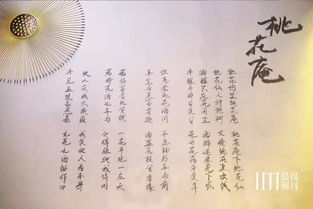 桃花庵
桃花坞里桃花庵
桃花庵下桃花仙
桃花仙人种桃树
又摘桃花酒钱
酒醒只在花坐
酒醉还来花下眠
半醒日复日
花开花落年复年
但愿老死花酒间
不愿鞠躬车马前
车尘马足
酒盏花枝
若将富贵比贫
一在平地一在天
若将花酒比车马
他得驱驰我得闲
他人笑我太疯癫
我笑他人看不穿
不见五陵豪杰墓
无花无酒锄作田
晨报
周刊